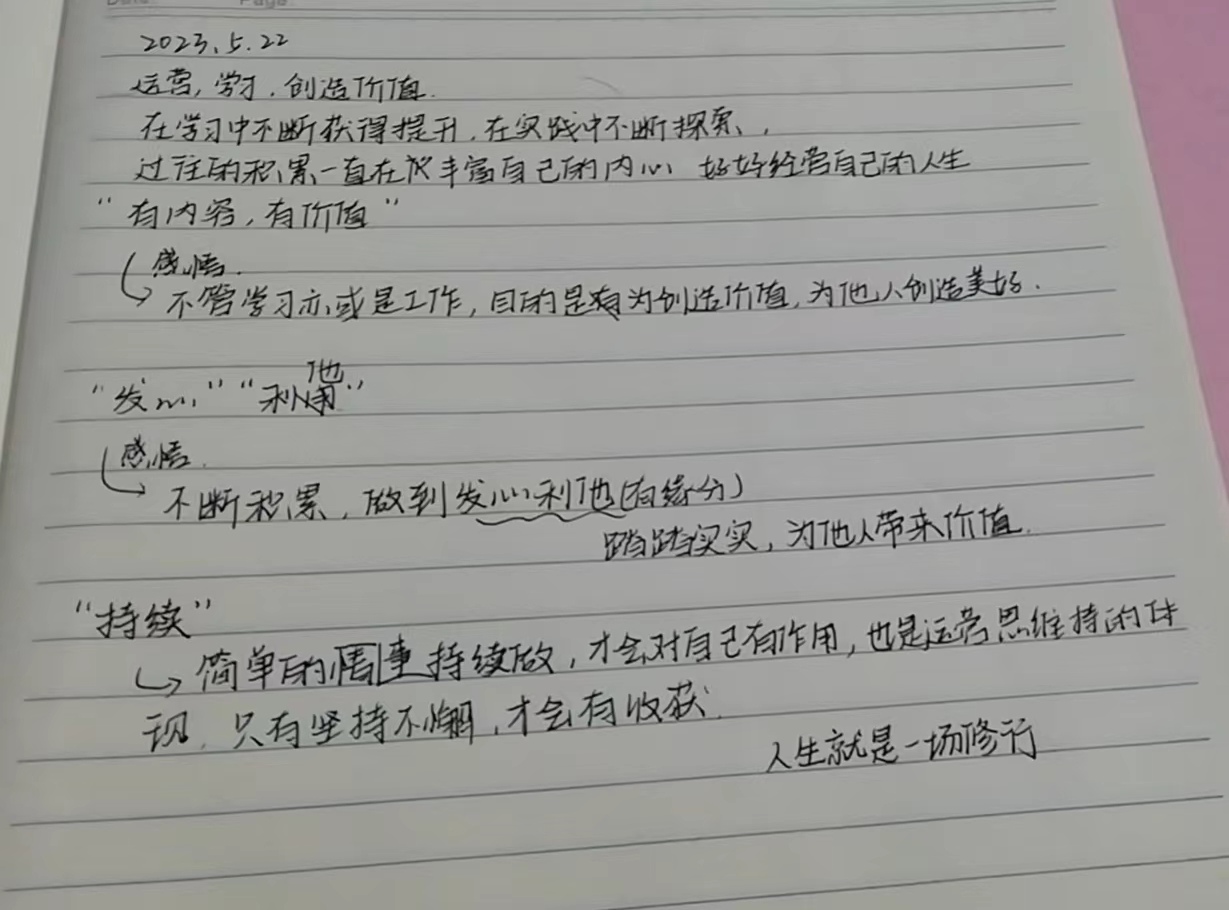 Page
2023.5.22
运营,学习,创造价值.
在学习中不断获得提升,在实践中不断探索,
过往的积累一直在丰富自己的内心 好好经营自己的人生
"有内容,有价值"
感悟.
不管学习亦或是工作,目的是为创造价值,为他人创造美好.
"发心" "利他"
感悟.
不断积累,做到发心利他(有缘分)
踏踏实实,为他人带来价值.
"持续"
简单的事持续做,才会对自己有作用,也是运营思维持的体
现,只有坚持不懈,才会有收获.
人生就是一场修行